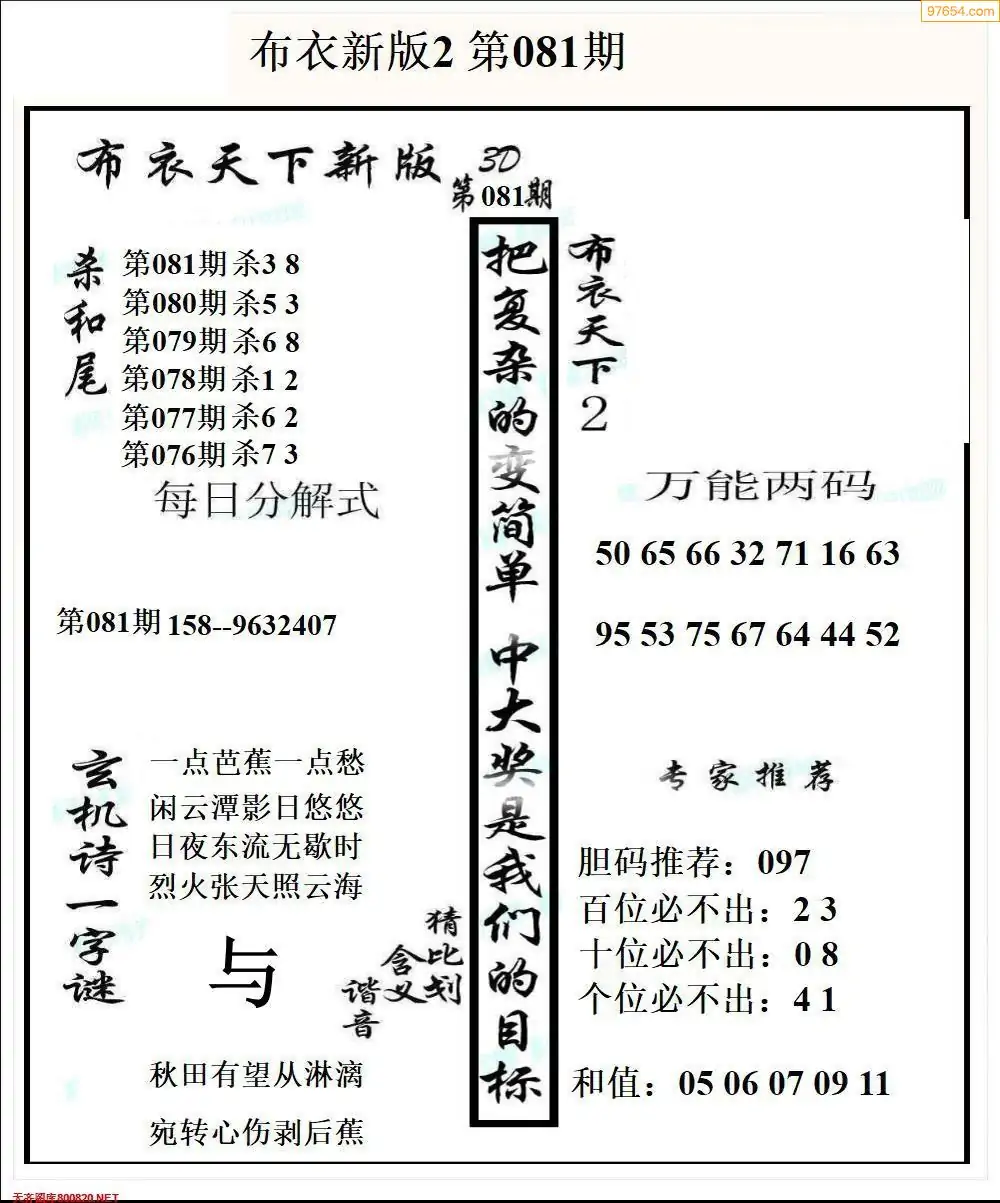 97654.com
布衣新版2 第081期
布衣天下新版
3D
第081期
杀和尾
第081期 杀3 8
第080期 杀5 3
第079期 杀6 8
第078期 杀1 2
第077期 杀6 2
第076期 杀7 3
每日分解式
第081期 158--9632407
玄机诗一字谜
一点芭蕉一点愁
闲云潭影日悠悠
日夜东流无歇时
烈火张天照云海
与
猜比划
含义
谐音
秋田有望从淋漓
宛转心伤剥后蕉
把复杂的变简单 中大奖是我们的目标
布衣天下2
万能两码
50 65 66 32 71 16 63
95 53 75 67 64 44 52
专家推荐
胆码推荐：097
百位必不出：2 3
十位必不出：0 8
个位必不出：4 1
和值：05 06 07 09 11
天齐图库800820.NET